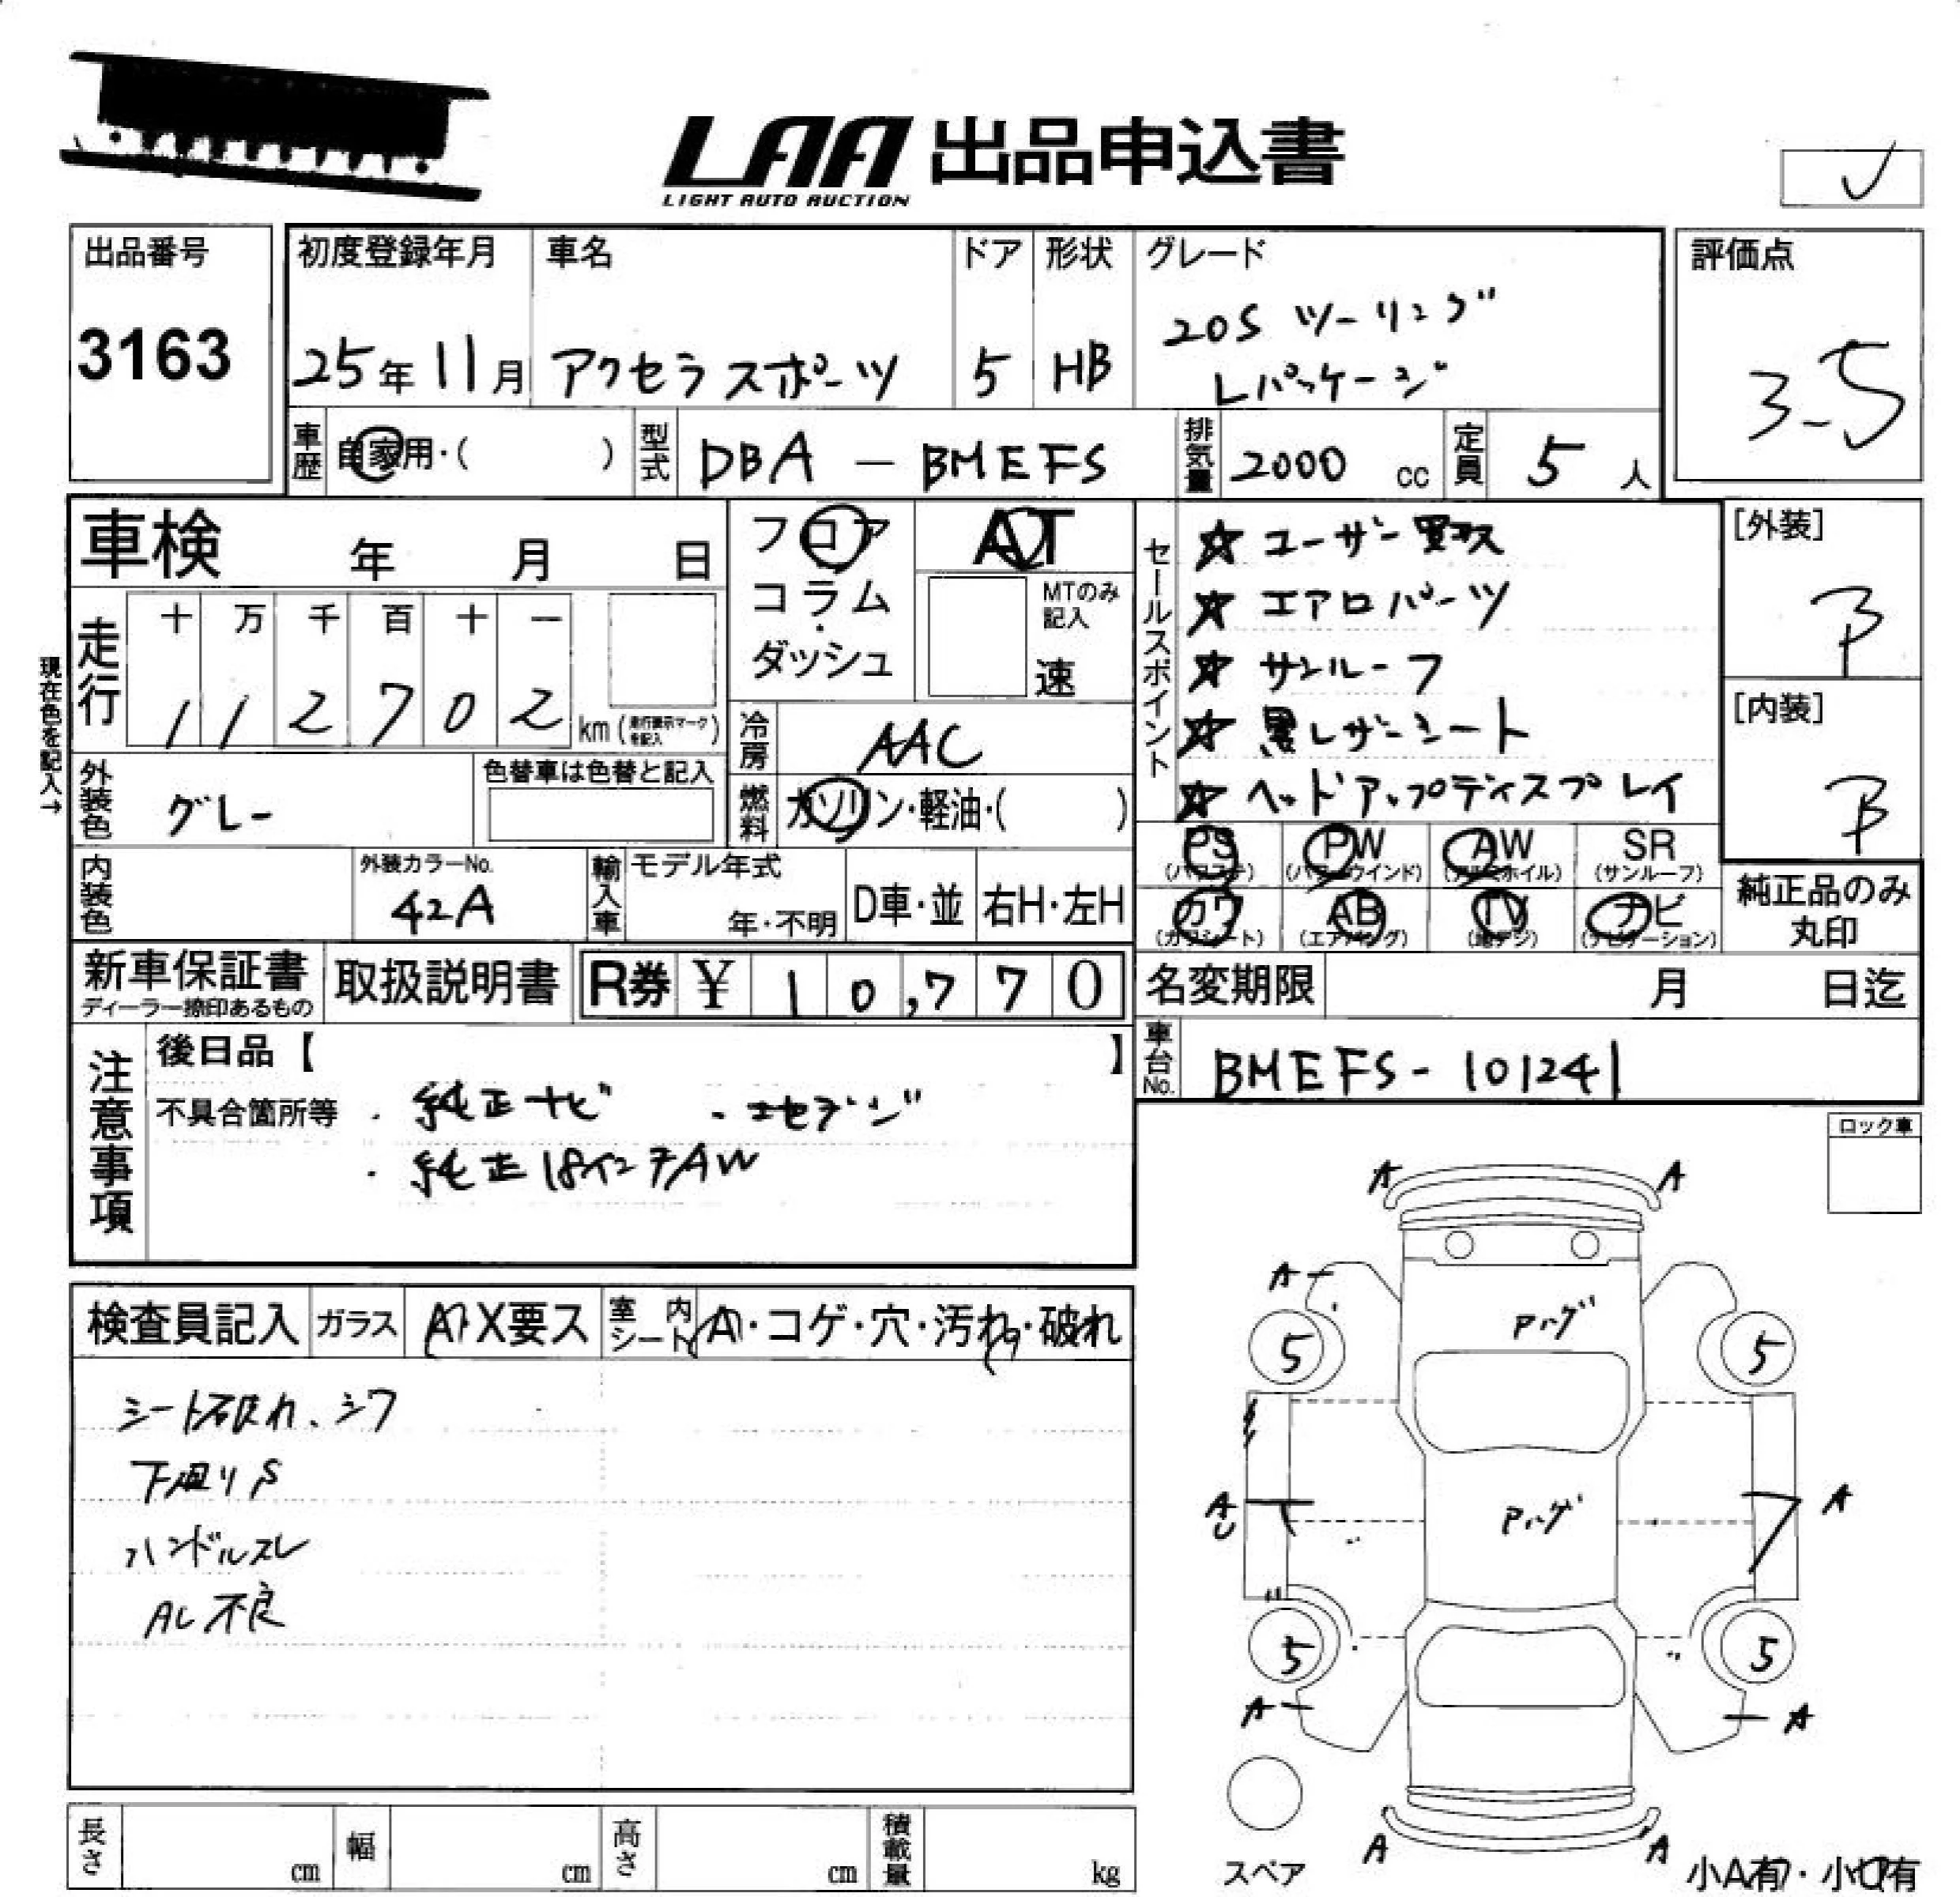 LAA 出品申込書
LIGHT AUTO AUCTION
出品番号
3163
初度登録年月
25年11月
車名
アクセラスポーツ
ドア
5
形状
HB
グレード
20S ツーリング
Lパッケージ
評価点
3.5
車歴
自家用・( )
型式
DBA - BMEFS
排気量
2000 cc
定員
5 人
車検 年 月 日
フロア
コラム・
ダッシュ
AT
MTのみ記入
速
セールスポイント
☆ ユーザー買取
☆ エアロパーツ
☆ サンルーフ
☆ 黒レザーシート
☆ ヘッドアップディスプレイ
[外装]
B
[内装]
B
現在色を記入→
走行
十 万 千 百 十 一
1 1 2 7 0 2 km
冷房
AAC
外装色
グレー
色替車は色替と記入
燃料
ガソリン・軽油・( )
内装色
外装カラーNo.
42A
輸入車
モデル年式
年・不明
D車・並
右H・左H
PS (パワステ)
PW (パワーウインド)
AW (アルミホイル)
SR (サンルーフ)
カワ (カワシート)
AB (エアバッグ)
TV (地デジ)
ナビ (ナビゲーション)
純正品のみ
丸印
新車保証書
ディーラー捺印あるもの
取扱説明書
R券 ¥ 10,770
名変期限 月 日迄
車台No.
BMEFS-101241
注意事項
後日品【 】
不具合箇所等
・純正ナビ ・フルセグ
・純正18インチAW
ロック車
検査員記入
ガラス
A・X要ス
室内シート
A・コゲ・穴・汚れ・破れ
シート破れ、シワ
下廻りS
ハンドルスレ
AC不良
A A
A
Pハゲ
5 5
A
U
A
Pハゲ
5 5
A A
A A
スペア
小A有・小U有
長さ cm
幅 cm
高さ cm
積載量 kg